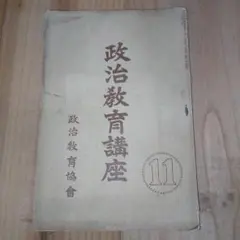 政治教育講座
11
政治教育協會